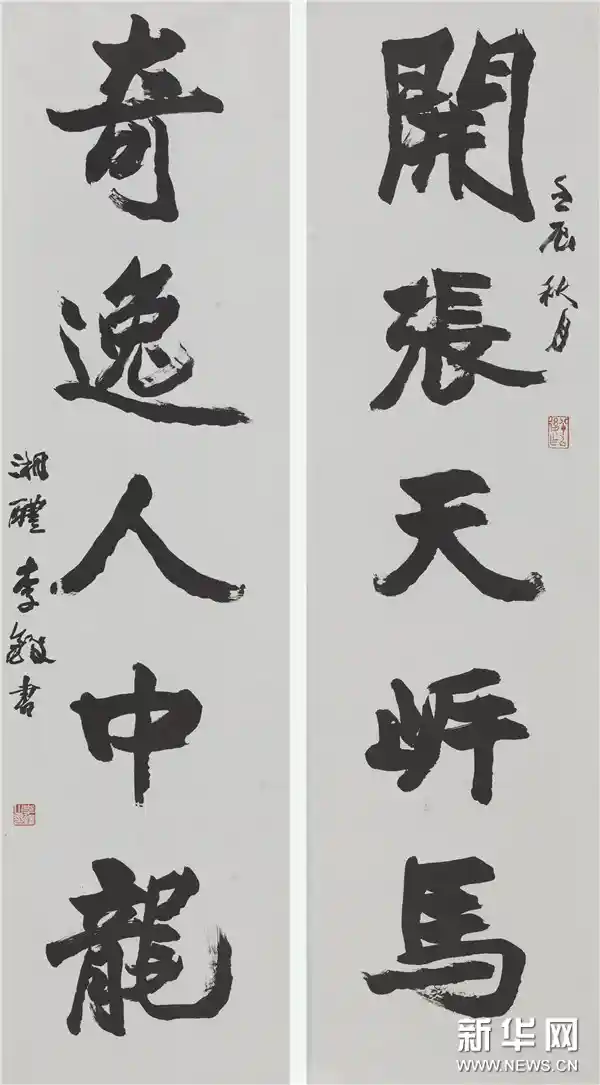 開張天岸馬
壬辰秋月
奇逸人中龍
湘醴李鐸書
新华网
WWW.NEWS.CN